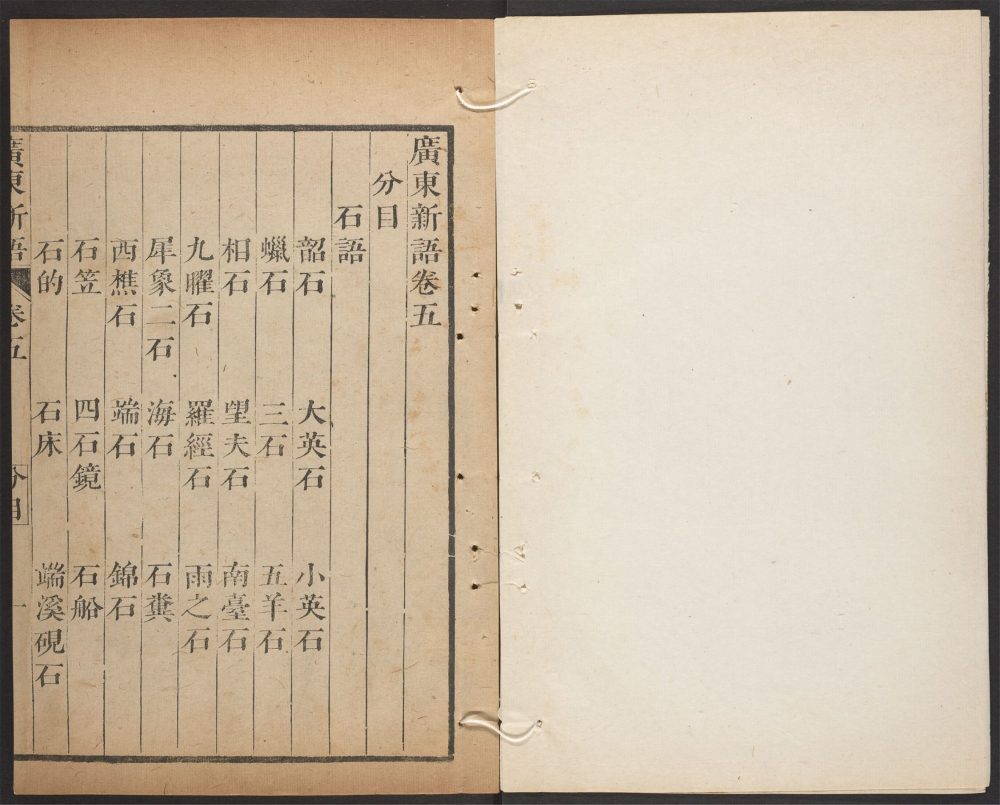 廣東新語卷五
分目
石語
韶石 大英石 小英石
蠟石 三石 五羊石
相石 望夫石 南臺石
九曜石 羅經石 雨之石
犀象二石 海石 石糞
西樵石 端石 錦石
石笠 四石鏡 石船
石的 石床 端溪硯石
廣東新語 卷五 分目 一